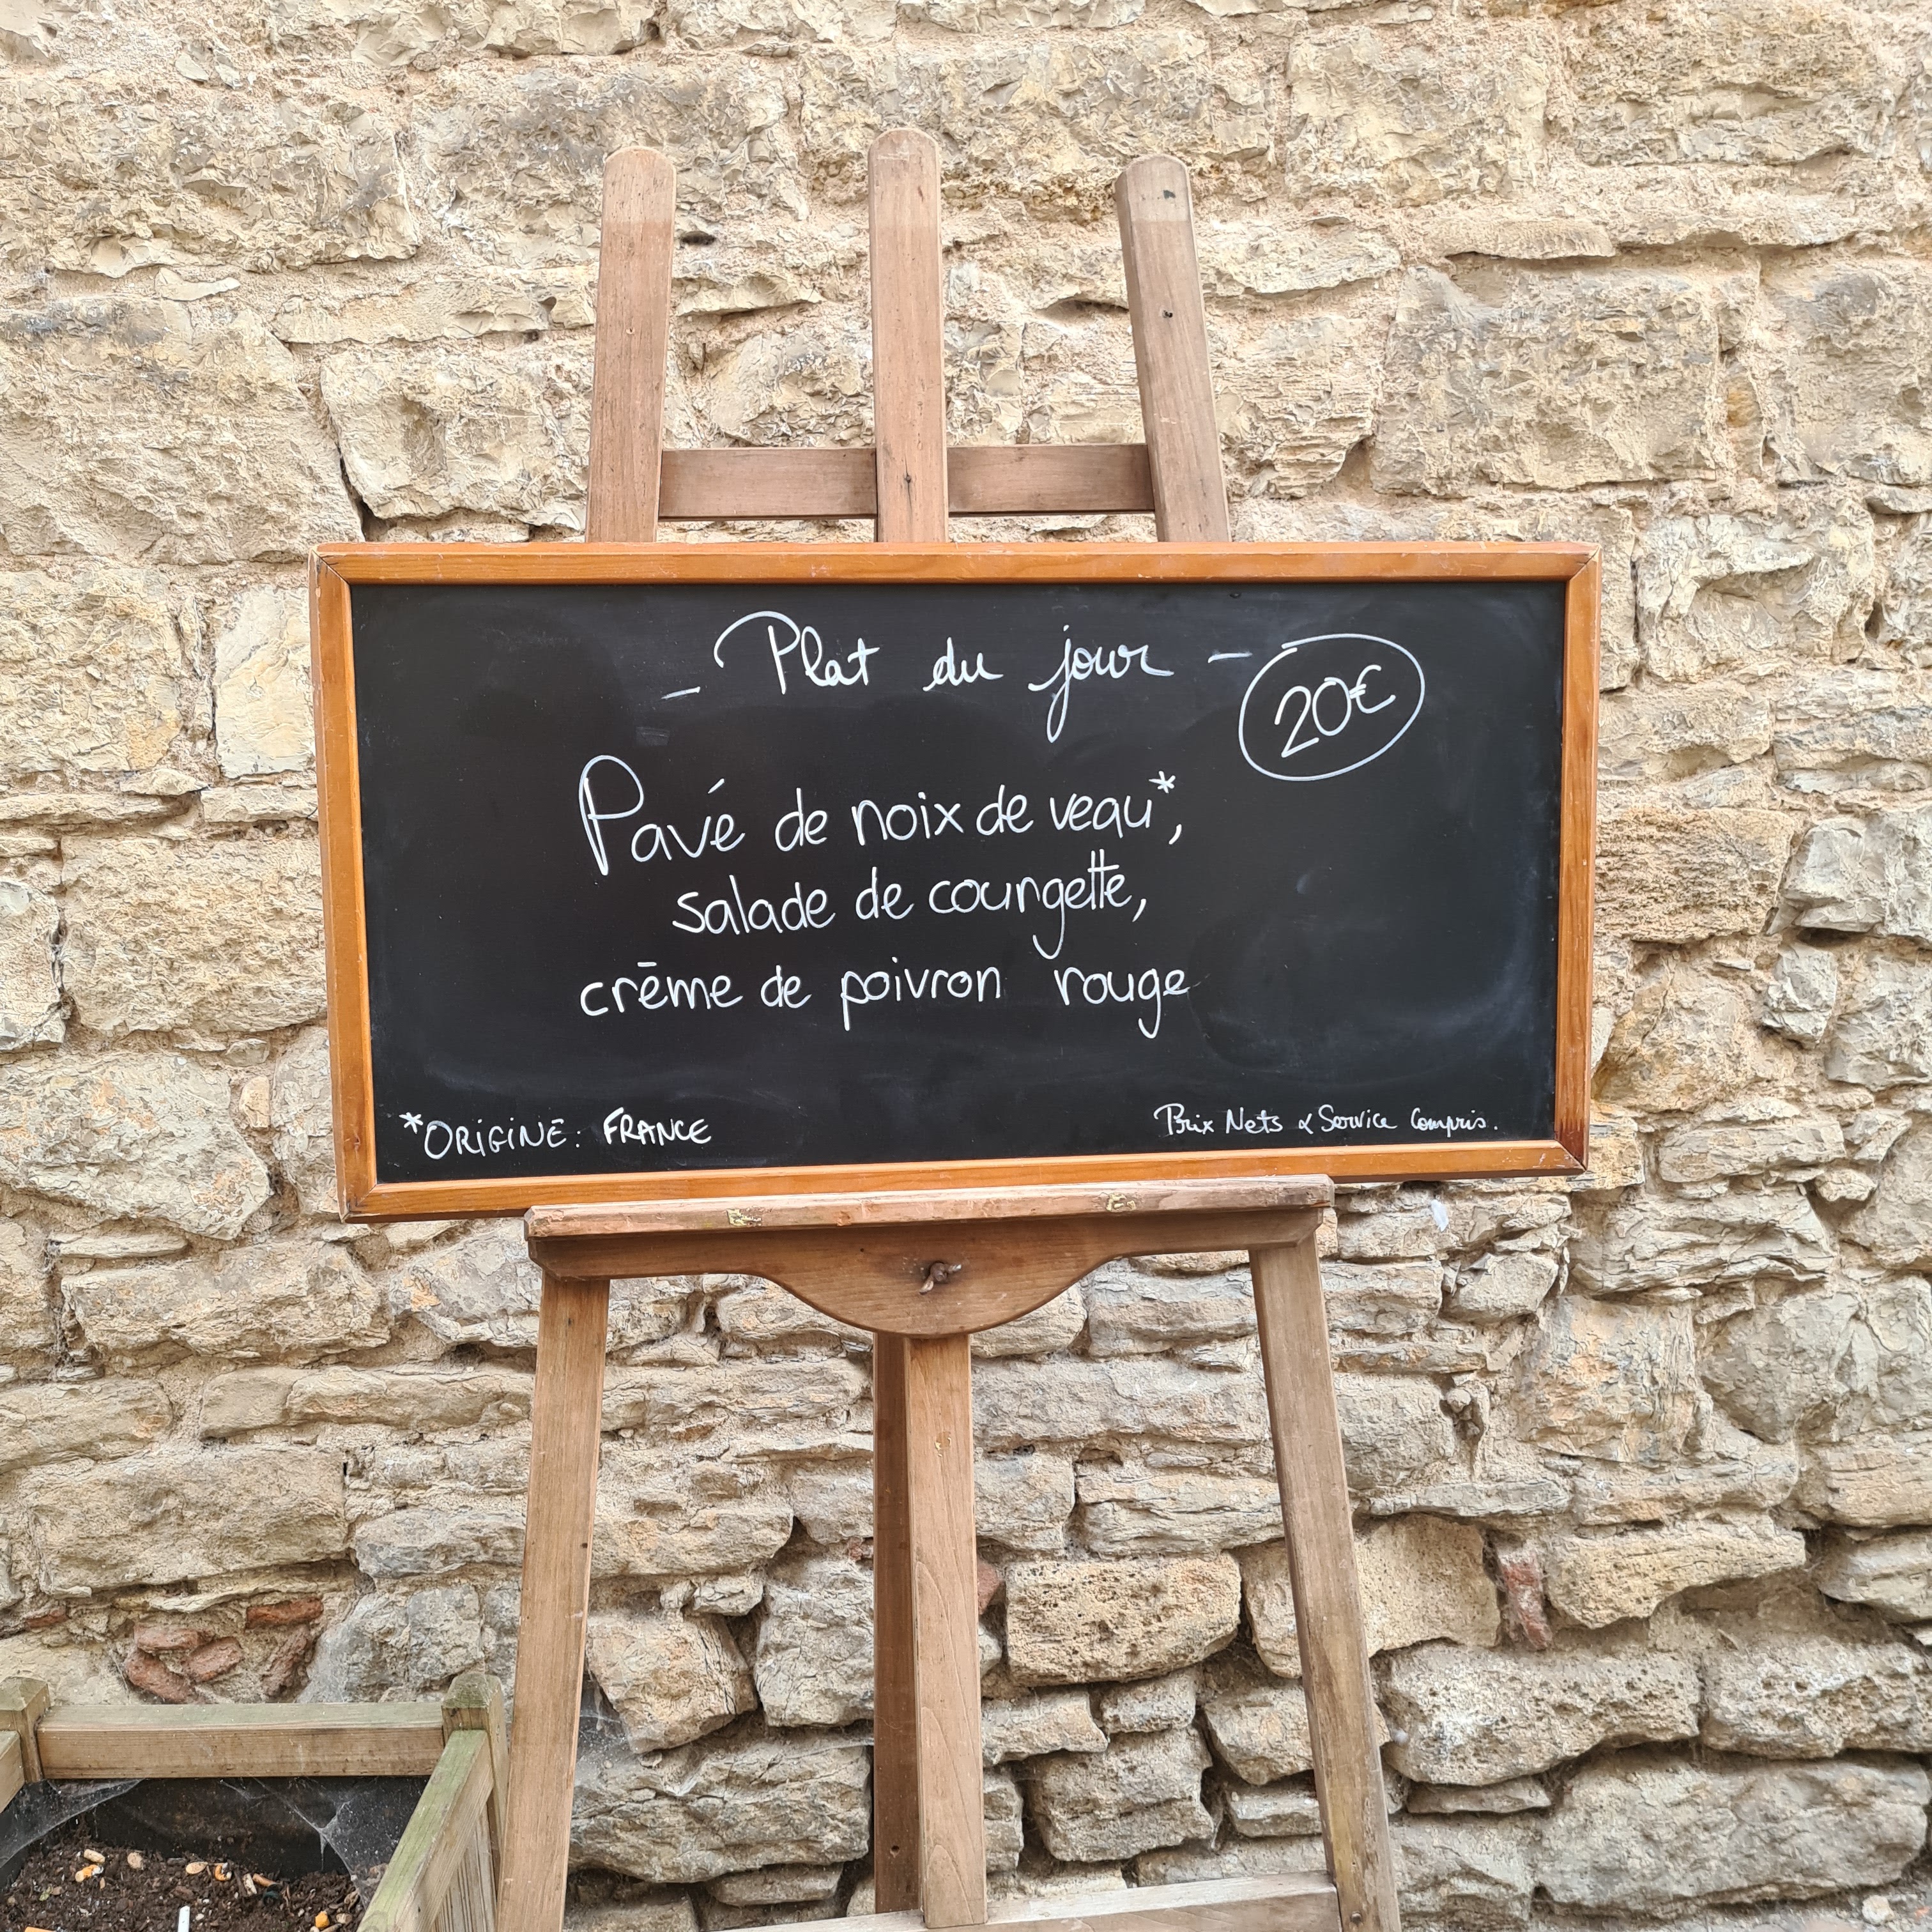 - Plat du jour -
20€
Pavé de noix de veau*,
salade de courgette,
crème de poivron rouge
*ORIGINE: FRANCE
Prix Nets & Service Compris.